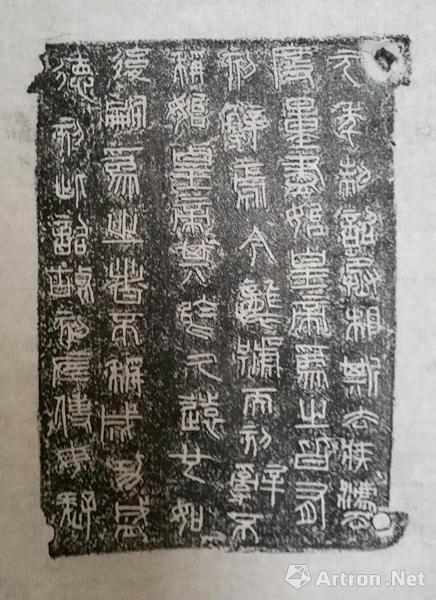 元年制詔丞相斯去疾灋
度量盡始皇帝為之皆有
刻辭焉今襲號而刻辭不
稱始皇帝其於久遠也如
後嗣為之者不稱成功盛
德刻此詔故刻左使毋疑
Artron.Net